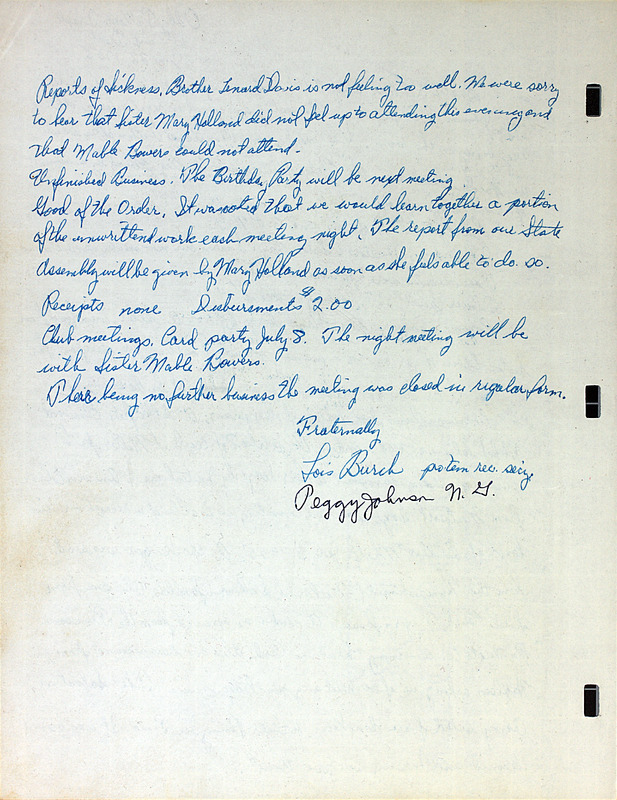 Reports of Sickness. Brother Lenard Davis is not feeling too well. We were sorry
to hear that Sister Mary Holland did not fel up to attending this evening and
that Mable Bowers could not attend.
Unfinished Business. The Birthday Party will be next meeting
Good of the Order. It was noted that we would learn together a portion
of the unwritten work each meeting night. The report from our State
Assembly will be given by Mary Holland as soon as she feels able to do so.
Receipts none Disbursments $2.00
Club meetings. Card party July 8. The night meeting will be
with Sister Mable Bowers.
There being no further business the meeting was closed in regular form.
Fraternally
Lois Burch protem rec. secy.
Peggy Johnson N. G.